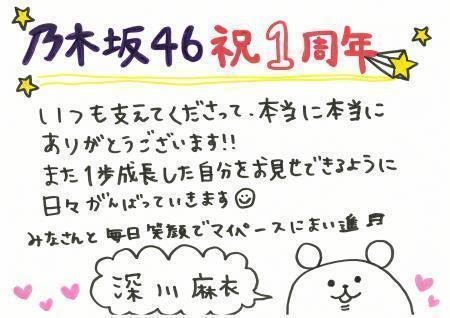 乃木坂46祝1周年
いつも支えてくださって、本当に本当に
ありがとうございます!!
また1歩成長した自分をお見せできるように
日々がんばっていきます
みなさんと毎日笑顔でマイペースにまい進♬
深川麻衣